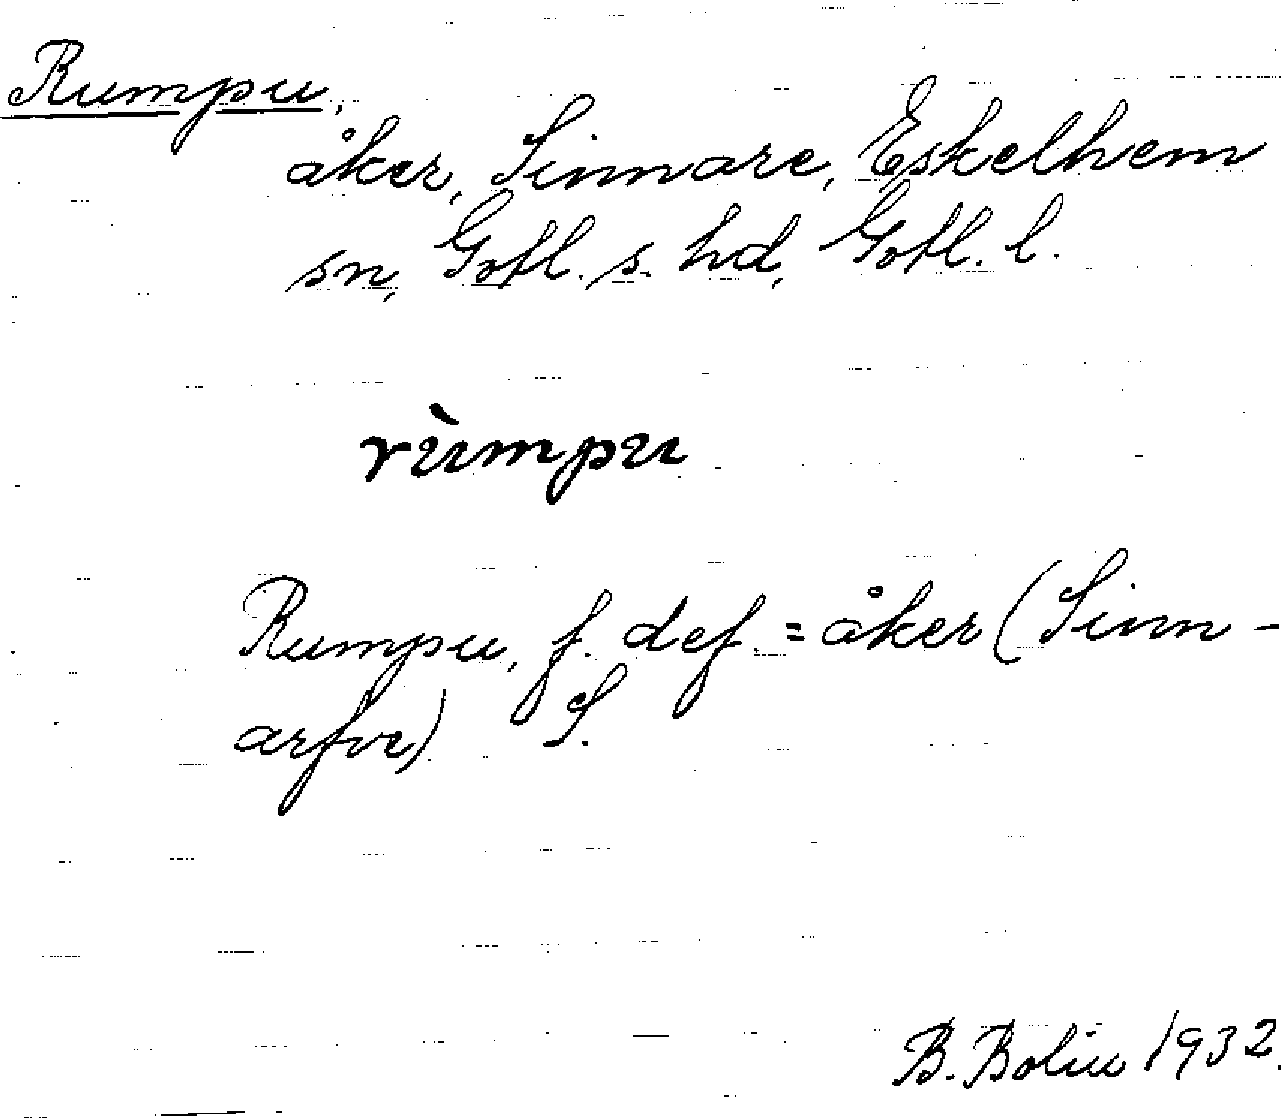 Rumpu,
åker, Sinnare, Eskelhem
sn, Gotl. s. hd, Gotl. l.
rùmpu
Rumpu, f. def. = åker (Sinn-
arfve) S.
B. Bolin 1932.